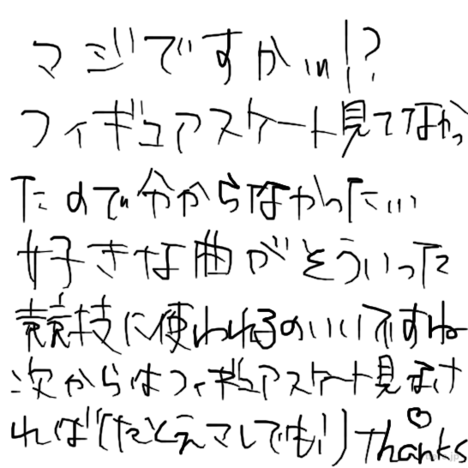 マジですかぃぃ!?
フィギュアスケート見てなかっ
たので分からなかったぃぃ
好きな曲がそういった
競技に使われるのいいですね
次からはフィギュアスケート見なけ
れば(たとえマしでも!)♡Thanks